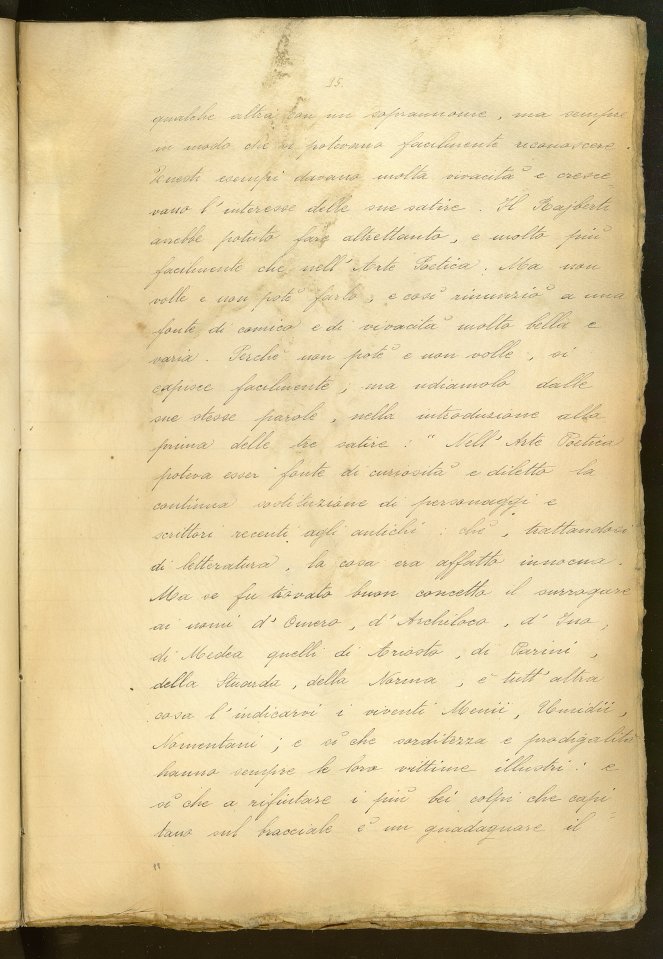 15.
qualche altra con un soprannome, ma sempre
in modo che si potevano facilmente riconoscere.
Questi esempi davano molta vivacità e cresce
vano l'interesse delle sue satire. Il Rajberti
avrebbe potuto fare altrettanto, e molto più
facilmente che nell'Arte Poetica. Ma non
volle e non potè farlo, e così rinunziò a una
fonte di comico e di vivacità molto bella e
varia. Perchè non potè e non volle, si
capisce facilmente, ma udiamolo dalle
sue stesse parole, nella introduzione alla
prima delle tre satire: "Nell'Arte Poetica
poteva esser fonte di curiosità e diletto la
continua sostituzione di personaggi e
scrittori recenti agli antichi: chè, trattandosi
di letteratura, la cosa era affatto innocua.
Ma se fu trovato buon concetto il surrogare
ai nomi d'Omero, d'Archiloco, d'Ino,
di Medea quelli di Ariosto, di Parini,
della Stuarda, della Norma, è tutt'altra
cosa l'indicarvi i viventi Menii, Ummidii,
Nomentani; e sì che sorditezza e prodigalità
hanno sempre le loro vittime illustri: e
sì che a rifiutare i più bei colpi che capi
tano sul bracciale è un guadagnare il